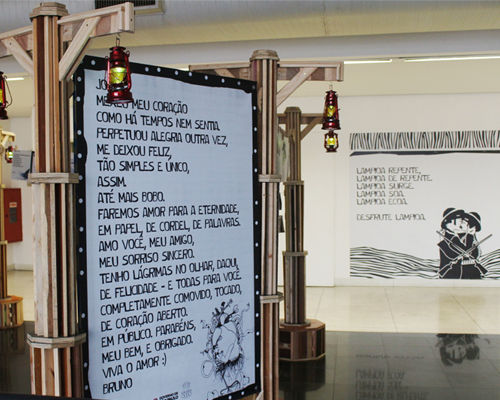 MEXEU MEU CORAÇÃO
COMO HÁ TEMPOS NEM SENTIA.
PERPETUOU ALEGRIA OUTRA VEZ,
ME DEIXOU FELIZ,
TÃO SIMPLES E UNICO,
ASSIM.
ATÉ MAIS BOBO.
FAREMOS AMOR PARA A ETERNIDADE,
EM PAPEL, DE CORDEL, DE PALAVRAS.
AMO VOCÊ, MEU AMIGO,
MEU SORRISO SINCERO.
TENHO LÁGRIMAS NO OLHAR, DAQUI,
DE FELICIDADE - E TODAS PARA VOCÊ.
COMPLETAMENTE COMOVIDO, TOCADO,
DE CORAÇÃO ABERTO.
EM PÚBLICO. PARABÉNS,
MEU BEM, E OBRIGADO.
VIVA O AMOR :)
BRUNO
LAMPIOA REPENTE,
LAMPIOA DE REPENTE.
LAMPIOA SURGE.
LAMPIOA SOA.
LAMPIOA ECOA.
DESFRUTE LAMPIOA.